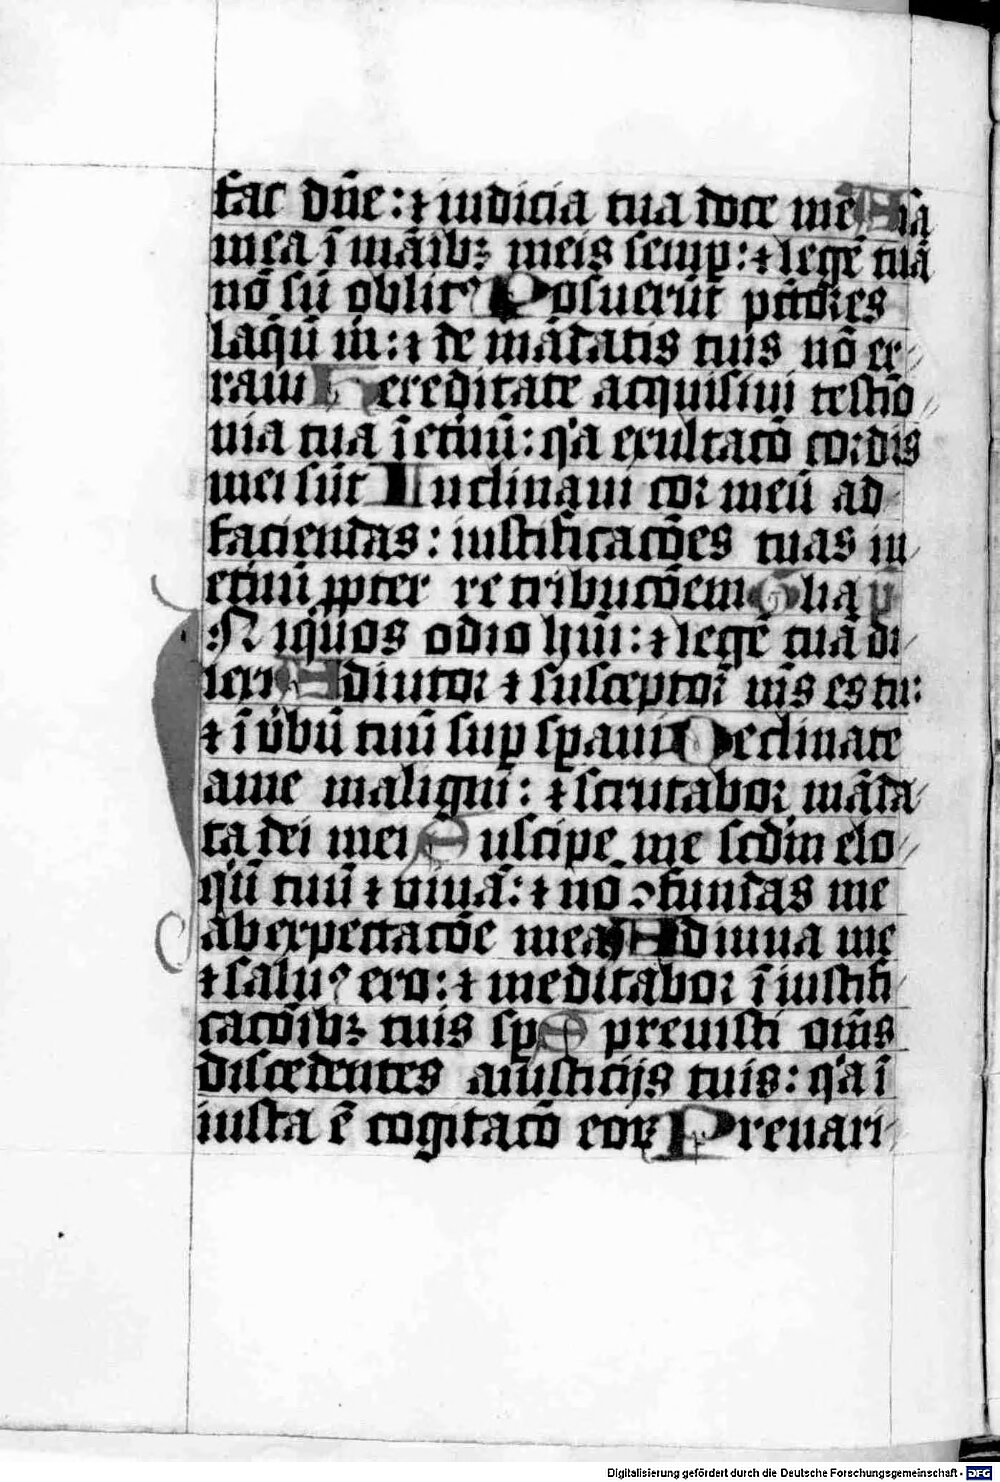 fac dn̄e: ⁊ iudicia tua doce me Aīa
mea ī māibꝫ meis semꝑ: ⁊ legē tuā
nō sū oblitꝰ Posuerūt pctōres
laq̄ū m̄: ⁊ de mādatis tuis nō er
raui Hereditate acquisiui testīo
nia tua ī etnū: q̇a exultacō cordis
mei sūt Inclinaui cor meū ad
faciendas: iustificacōes tuas in
etnū ꝓpter retribucōem Glīa p
Niquos odio hūi: ⁊ legē tuā di
lexi Adiutor ⁊ susceptor m̄s es tu:
⁊ ī v̄bū tuū suꝑ sꝑaui Declinate
a me maligni: ⁊ scrutabor māda
ta dei mei Suscipe me scdm elo
q̄ū tuū ⁊ viuā: ⁊ nō ꝯfundas me
ab expectacōe mea Adiuua me
⁊ saluꝰ ero: ⁊ meditabor ī iustifi
cacōibꝫ tuis sꝑ Spreuisti om̄s
discedentes a iusticijs tuis: q̇a ī
iusta ē cogitacō eoꝝ Preuari
Digitalisierung gefördert durch die Deutsche Forschungsgemeinschaft - DFG